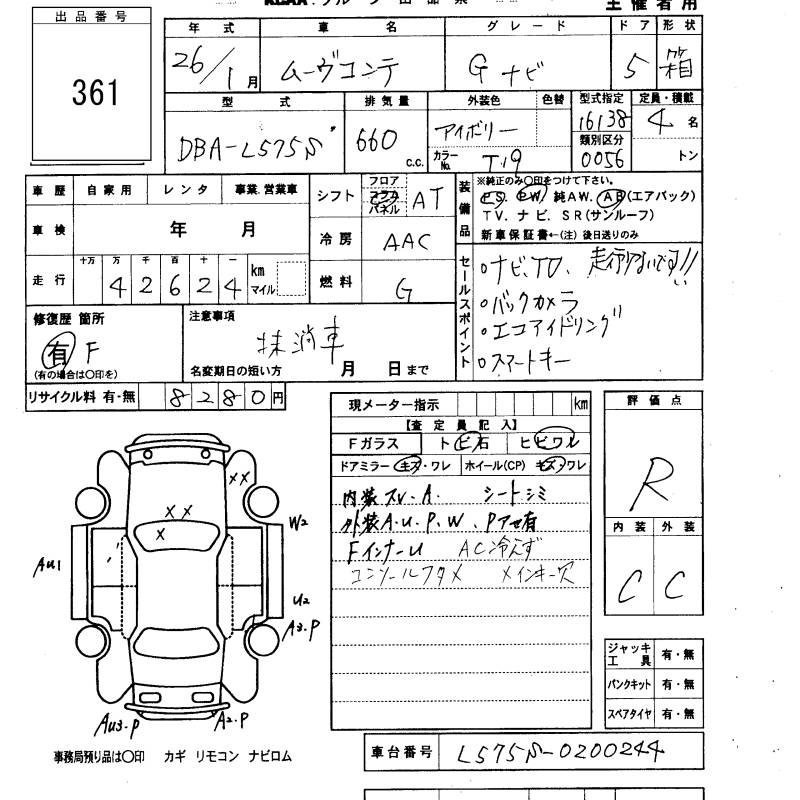 出品番号
361
年 式 車 名 グ レ ー ド ド ア 形 状
26/1月 ムーヴコンテ G ナビ 5 箱
型 式 排 気 量 外装色 色替 型式指定 定員・積載
DBA-L575S 660 c.c. アイボリー 16138 4 名
類別区分
カラーNo. T19 0056 トン
車 歴 自 家 用 レ ン タ 事業.営業車 シフト フロア コラム パネル AT
装備品 ※純正のみ○印をつけて下さい。
PS. PW. 純AW. AB(エアバック)
TV. ナ ビ. SR(サンルーフ)
新 車 保 証 書←(注) 後日送りのみ
車 検 年 月 冷 房 AAC
走 行 十万 万 千 百 十 一 km マイル
4 2 6 2 4 燃 料 G
セールスポイント
○ナビ、TV、走行少ないです!!
○バックカメラ
○エコアイドリング
○スマートキー
修復歴 箇所
有 F
(有の場合は○印を)
注意事項
抹消車
名変期日の短い方 月 日まで
リサイクル料 有・無 8 2 8 0 円
現メーター指示 km
【査 定 員 記 入】
Fガラス ト ビ 石 ヒ ビ ワレ
ドアミラー キズ・ワレ ホイール(CP) キズ・ワレ
内装スレ・A. シートシミ
外装A・U・P、W、Pアセ有
FインナーU AC冷えず
コンソールフタメ メインキー欠
評 価 点
R
内 装 外 装
C C
ジャッキ 工 具 有・無
パンクキット 有・無
スペアタイヤ 有・無
XX
XX
X
W2
Au1
U2
A3.P
Au3.P
A2.P
事務局預り品は○印 カギ リモコン ナビロム
車台番号 L575S-0200244